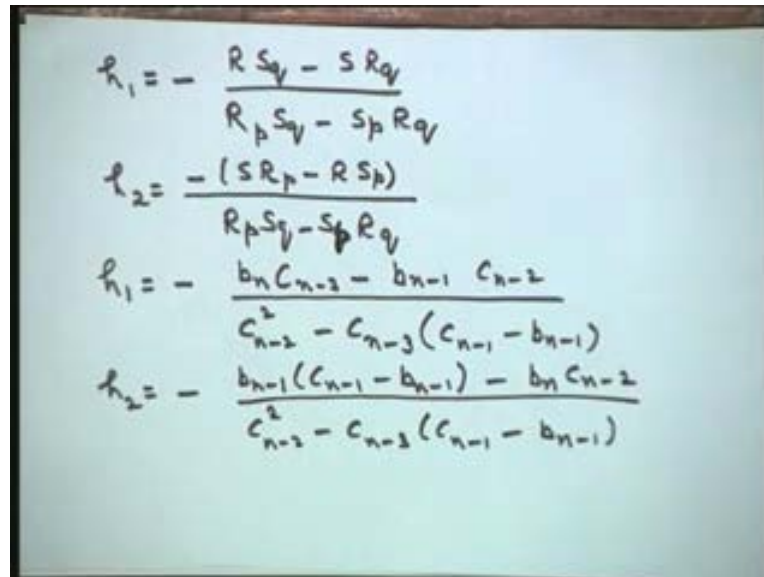 h₁ = - (R S_q - S R_q) / (R_p S_q - S_p R_q)
h₂ = -(S R_p - R S_p) / (R_p S_q - S_p R_q)
h₁ = - (b_n C_{n-3} - b_{n-1} C_{n-2}) / (C²_{n-2} - C_{n-3}(C_{n-1} - b_{n-1}))
h₂ = - (b_{n-1}(C_{n-1} - b_{n-1}) - b_n C_{n-2}) / (C²_{n-2} - C_{n-3}(C_{n-1} - b_{n-1}))